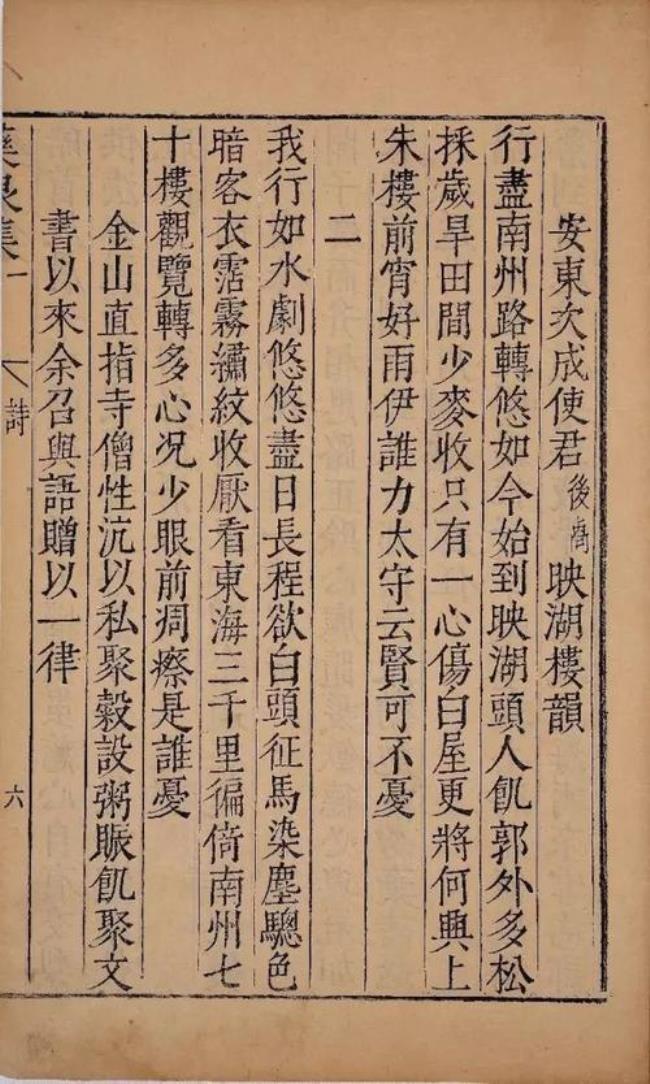 安東次成使君後映湖樓韻
行盡南州路轉悠如今始到映湖頭人飢郭外多松
採歲旱田間少麥收只有一心傷白屋更將何興上
朱樓前宵好雨伊誰力太守云賢可不憂
二
我行如水劇悠悠盡日長程欲白頭征馬染塵驄色
暗客衣霑霧繡紋收厭看東海三千里徧倚南州七
十樓觀覽轉多心况少眼前凋瘵是誰憂
金山直指寺僧性沆以私聚穀設粥賑飢聚文
書以來余召與語贈以一律
藥泉集一 詩 六